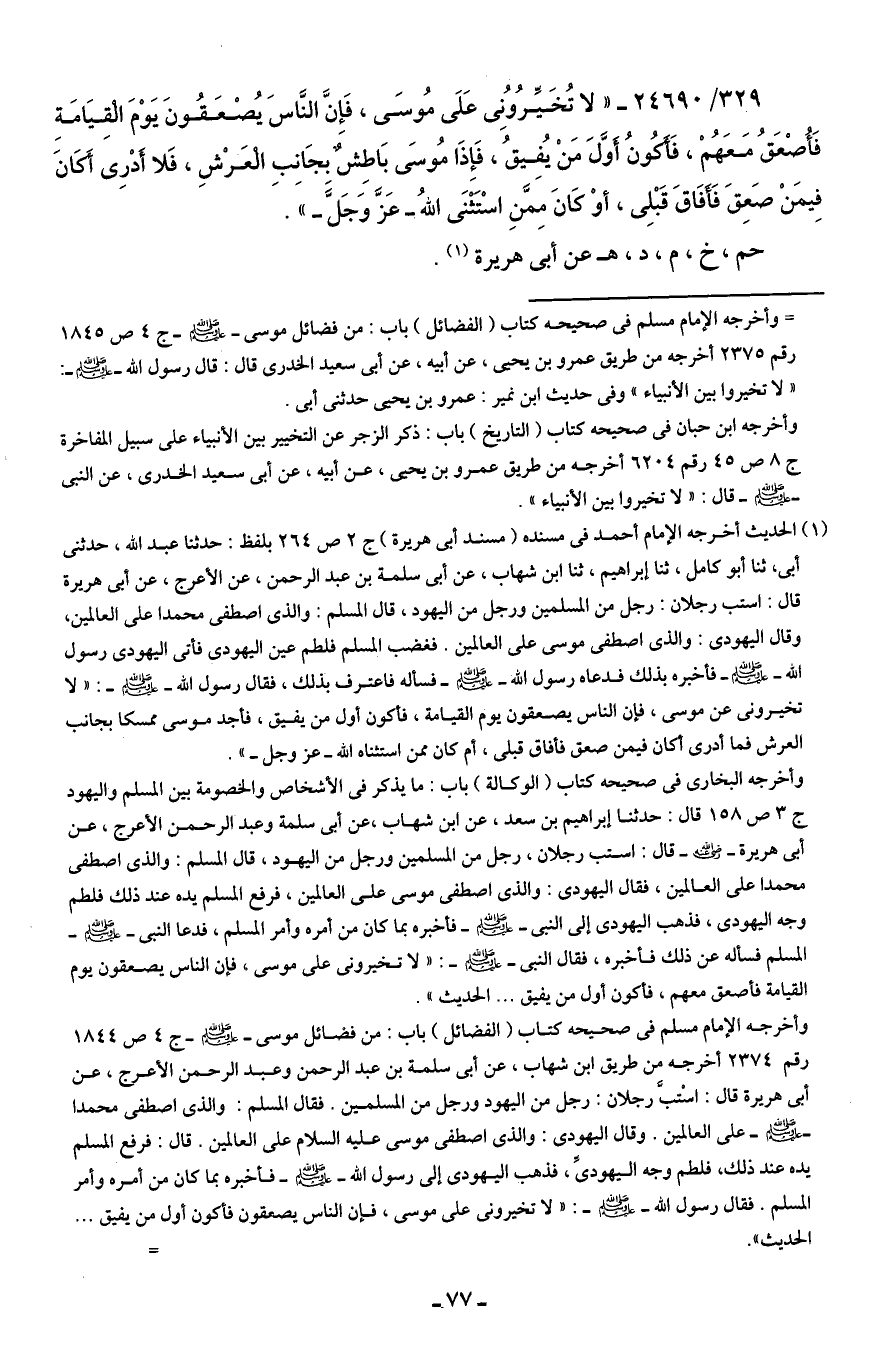 ٣٢٩/ ٢٤٦٩٠ ـ « لا تُخَيِّرُونِى عَلَى مُوسَى ، فَإِنَّ النَّاسَ يُصْعَقُونَ يَوْمَ الْقِيَامَةِ
فَأُصْعَقُ مَعَهُمْ ، فَأَكُونُ أَوَّلَ مَنْ يُفِيقُ ، فَإِذَا مُوسَى بَاطِشٌ بِجَانِبِ الْعَرْشِ ، فَلا أَدْرِى أَكَانَ
فِيمَنْ صَعِقَ فَأَفَاقَ قَبْلِى ، أوْ كَانَ مِمَّنِ اسْتَثْنَى اللهُ ـ عَزَّ وَجَلَّ ـ » .
حم ، خ ، م ، د ، هـ عن أبى هريرة (١) .
= وأخرجه الإمام مسلم فى صحيحه كتاب ( الفضائل ) باب : من فضائل موسى ـ ﷺ ـ ج ٤ ص ١٨٤٥
رقم ٢٣٧٥ أخرجه من طريق عمرو بن يحيى ، عن أبيه ، عن أبى سعيد الخدرى قال : قال رسول الله ـ ﷺ ـ:
« لا تخيروا بين الأنبياء » وفى حديث ابن نمير : عمرو بن يحيى حدثنى أبى .
وأخرجه ابن حبان فى صحيحه كتاب ( التاريخ ) باب : ذكر الزجر عن التخيير بين الأنبياء على سبيل المفاخرة
ج ٨ ص ٤٥ رقم ٦٢٠٤ أخرجه من طريق عمرو بن يحيى ، عن أبيه ، عن أبى سعيد الخدرى ، عن النبى
ـ ﷺ ـ قال : « لا تخيروا بين الأنبياء » .
(١) الحديث أخرجه الإمام أحمد فى مسنده ( مسند أبى هريرة ) ج ٢ ص ٢٦٤ بلفظ : حدثنا عبد الله ، حدثنى
أبى، ثنا أبو كامل ، ثنا إبراهيم ، ثنا ابن شهاب ، عن أبى سلمة بن عبد الرحمن ، عن الأعرج ، عن أبى هريرة
قال : استب رجلان : رجل من المسلمين ورجل من اليهود ، قال المسلم : والذى اصطفى محمدا على العالمين،
وقال اليهودى : والذى اصطفى موسى على العالمين . فغضب المسلم فلطم عين اليهودى فأتى اليهودى رسول
الله ـ ﷺ ـ فأخبره بذلك فدعاه رسول الله ـ ﷺ ـ فسأله فاعترف بذلك ، فقال رسول الله ـ ﷺ ـ : « لا
تخيرونى عن موسى ، فإن الناس يصعقون يوم القيامة ، فأكون أول من يفيق ، فأجد موسى ممسكا بجانب
العرش فما أدرى أكان فيمن صعق فأفاق قبلى ، أم كان ممن استثناه الله ـ عز وجل ـ » .
وأخرجه البخارى فى صحيحه كتاب ( الوكالة ) باب : ما يذكر فى الأشخاص والخصومة بين المسلم واليهود
ج ٣ ص ١٥٨ قال : حدثنا إبراهيم بن سعد ، عن ابن شهاب ،عن أبى سلمة وعبد الرحمن الأعرج ، عن
أبى هريرة ـ رضي الله عنه ـ قال : استب رجلان ، رجل من المسلمين ورجل من اليهود ، قال المسلم : والذى اصطفى
محمدا على العالمين ، فقال اليهودى : والذى اصطفى موسى على العالمين ، فرفع المسلم يده عند ذلك فلطم
وجه اليهودى ، فذهب اليهودى إلى النبى ـ ﷺ ـ فأخبره بما كان من أمره وأمر المسلم ، فدعا النبى ـ ﷺ ـ
المسلم فسأله عن ذلك فأخبره ، فقال النبى ـ ﷺ ـ : « لا تخيرونى على موسى ، فإن الناس يصعقون يوم
القيامة فأصعق معهم ، فأكون أول من يفيق ... الحديث » .
وأخرجه الإمام مسلم فى صحيحه كتاب ( الفضائل ) باب : من فضائل موسى ـ ﷺ ـ ج ٤ ص ١٨٤٤
رقم ٢٣٧٤ أخرجه من طريق ابن شهاب ، عن أبى سلمة بن عبد الرحمن وعبد الرحمن الأعرج ، عن
أبى هريرة قال : اسْتبَّ رجلان : رجل من اليهود ورجل من المسلمين . فقال المسلم : والذى اصطفى محمدا
ـ ﷺ ـ على العالمين . وقال اليهودى : والذى اصطفى موسى عليه السلام على العالمين . قال : فرفع المسلم
يده عند ذلك، فلطم وجه اليهودىِّ ، فذهب اليهودى إلى رسول الله ـ ﷺ ـ فأخبره بما كان من أمره وأمر
المسلم . فقال رسول الله ـ ﷺ ـ : « لا تخيرونى على موسى ، فإن الناس يصعقون فأكون أول من يفيق ...
الحديث».
=
ـ ٧٧ ـ